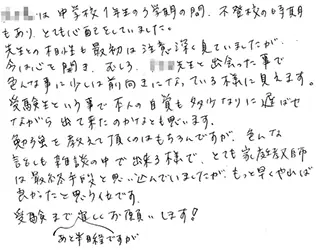 は中学校1年生の3学期の間、不登校の時期
もあり、とても心配をしていました。
先生との相性も最初は注意深く見ていましたが
今は心を開き、むしろ、先生と出会った事で
色んな事に少しは前向きになっている様に見えます。
受験生という事で本人の自覚も多少なりに遅ばせ
ながら出て来たのかなとも思います。
勉強を教えて頂くのはもちろんですが、色んな
話をしも雑談の中で出来る様で、とても家庭教師
は最終手段と思い込んでいましたが、もっと早くやれば
良かったと思う位です。
受験まで宜しくお願いします!
あと半年経ですが